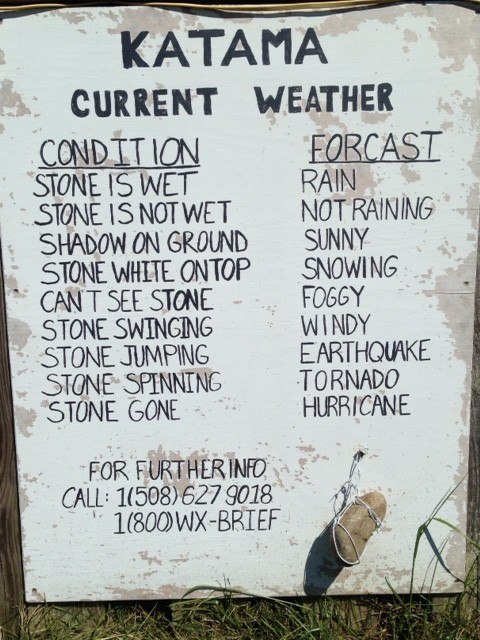 KATAMA
CURRENT WEATHER
CONDITION FORCAST
STONE IS WET RAIN
STONE IS NOT WET NOT RAINING
SHADOW ON GROUND SUNNY
STONE WHITE ON TOP SNOWING
CAN'T SEE STONE FOGGY
STONE SWINGING WINDY
STONE JUMPING EARTHQUAKE
STONE SPINNING TORNADO
STONE GONE HURRICANE
FOR FURTHER INFO
CALL: 1(508) 627 9018
1(800) WX-BRIEF